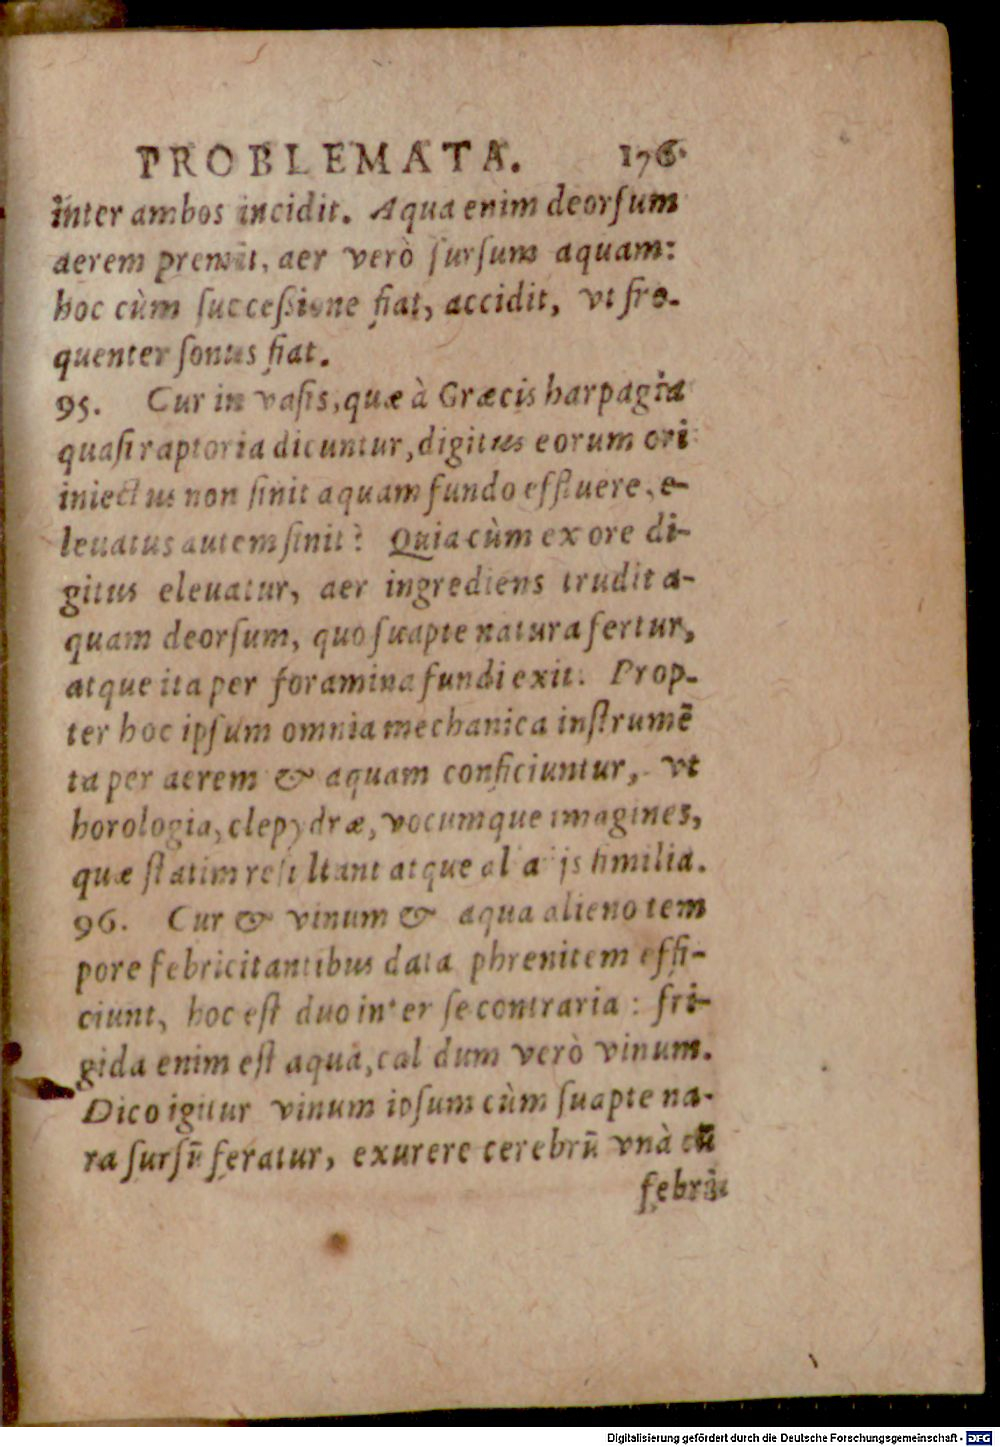 PROBLEMATA. 176.
inter ambos incidit. Aqua enim deorſum
aerem premit, aer verò ſurſum aquam:
hoc cùm ſucceſsione fiat, accidit, vt fre-
quenter ſonus fiat.
95. Cur in vaſis, quæ à Græcis harpagia
quaſi raptoria dicuntur, digitus eorum ori
iniectus non ſinit aquam fundo effluere, e-
leuatus autem ſinit? Quia cùm ex ore di-
gitus eleuatur, aer ingrediens trudit a-
quam deorſum, quo ſuapte natura fertur,
atque ita per foramina fundi exit. Prop-
ter hoc ipſum omnia mechanica inſtrumē
ta per aerem & aquam conficiuntur, vt
horologia, clepydræ, vocumque imagines,
quæ ſtatim reſiltant atque al a ijs ſimilia.
96. Cur & vinum & aqua alieno tem
pore febricitantibus data phrenitem effi-
ciunt, hoc eſt duo inter ſe contraria: fri-
gida enim eſt aqua, calidum verò vinum.
Dico igitur vinum ipſum cùm ſuapte na-
ra ſurſū feratur, exurere cerebrū vnà cū
febri:
Digitalisierung gefördert durch die Deutsche Forschungsgemeinschaft - DFG